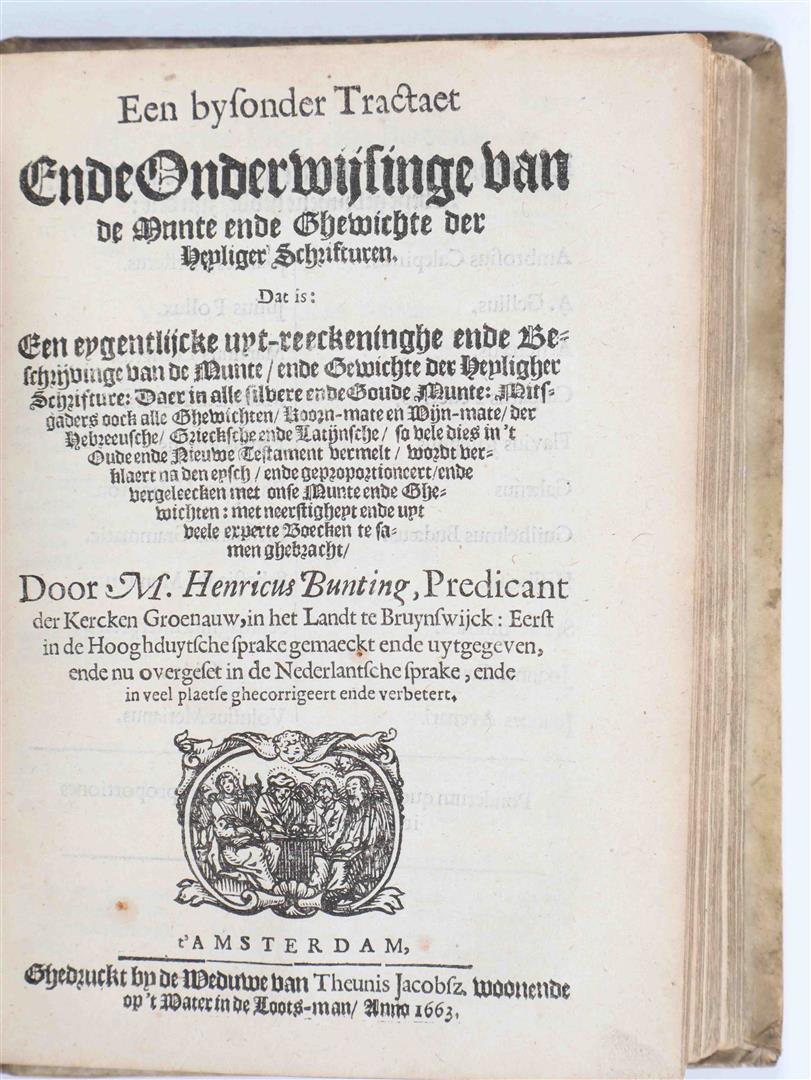 Een byſonder Tractaet
Ende Onderwijſinge van
de Munte ende Ghewichte der
Heyliger Schrifturen.
Dat is:
Een eygentlijcke uyt-reeckeninghe ende Be-
ſchrijvinge van de Munte / ende Gewichte der Heyligher
Schrifture: Daer in alle ſilvere ende Goude Munte: Mitſ-
gaders oock alle Ghewichten / Koorn-mate en Wijn-mate / der
Hebreeuſche / Grieckſche ende Latijnſche / ſo vele dies in 't
Oude ende Nieuwe Teſtament vermelt / wordt ver-
klaert na den eyſch / ende geproportioneert / ende
vergeleecken met onſe Munte ende Ghe-
wichten: met neerſtigheyt ende uyt
veele experte Boecken te ſa-
men ghebracht /
Door M. Henricus Bunting, Predicant
der Kercken Groenauw, in het Landt te Bruynſwijck: Eerſt
in de Hooghduytſche ſprake gemaeckt ende uytgegeven,
ende nu overgeſet in de Nederlantſche ſprake, ende
in veel plaetſe ghecorrigeert ende verbetert.
t'AMSTERDAM,
Ghedruckt by de Weduwe van Theunis Jacobſz. woonende
op 't Water in de Loots-man / Anno 1663.